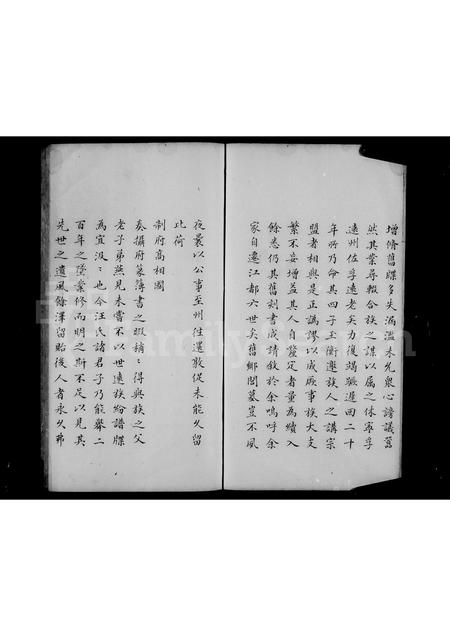 增脩舊牒多失漏濫未允衆心諮議舊
然其業尋輟合族之謀以屬之休寧孚
遠州佐孚遠老矣力復竭蹶遲回二十
年所乃命其四子玉衡邀族人之講宗
盟者相與是正譌謬以成厥事族大支
繁不妄增益其人自釐定者量為續入
餘悉仍其舊刻書成請敘於余嗚呼余
家自遷江都六世矣舊鄉閭墓豈不風
夜曩以公事至州往還敦促未能久留
比荷
制府高相國
奏攝府篆簿書之暇稍稍得與族之父
老子弟燕見未嘗不以世遠族紛譜牒
為宜汲汲也今汪氏諸君子乃能舉二
百年之墜業修而明之斯不足以見其
先世之遺風餘澤留貽後人者永久弗
FamilySearch